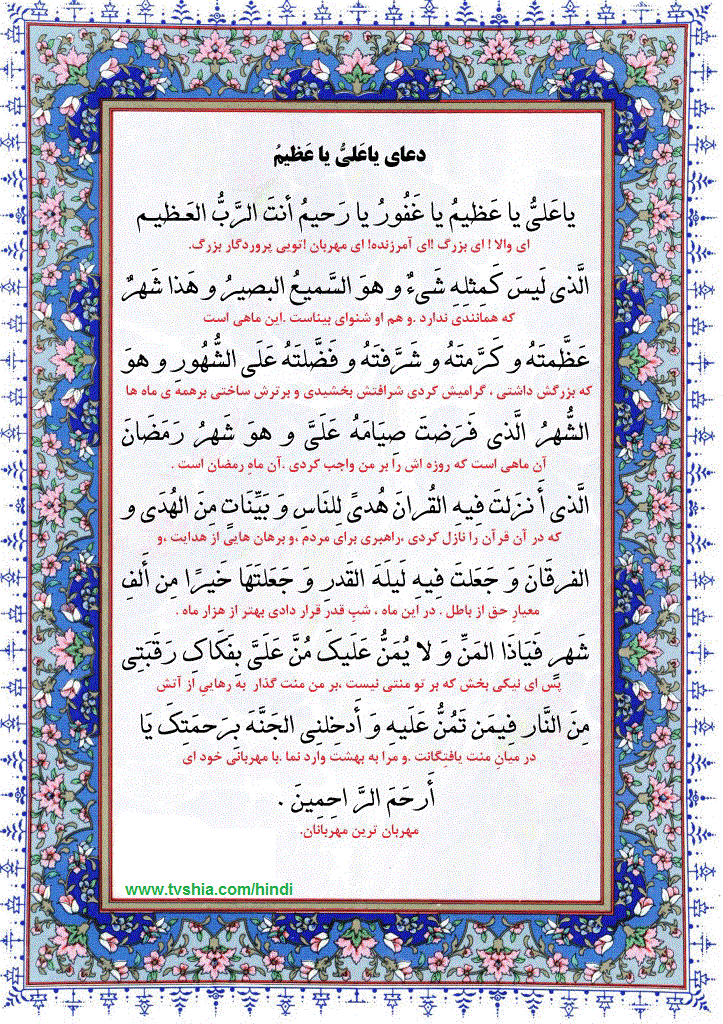 دعای یاعَلیُّ یا عَظیمُ
یاعَلیُّ یا عَظیمُ یا غَفُورُ یا رَحیمُ أنتَ الرَّبُّ العَظیـم
ای والا ! ای بزرگ !ای آمرزنده! ای مهربان !تویی پروردگار بزرگ.
الَّذی لَیسَ کَمِثلِهِ شَیءٌ و هوَ السَّمیعُ البصیرُ و هَذا شَهرٌ
که همانندی ندارد .و هم او شنوای بیناست .این ماهی است
عَظَّمتَهُ و کَرَّمتَهُ و شَرَّفتَهُ و فَضَّلتَهُ عَلَی الشُّهُورِ و هوَ
که بزرگش داشتی ، گرامیش کردی شرافتش بخشیدی و برترش ساختی برهمهٔ ی ماه ها
الشُّهرُ الَّذی فَرَضتَ صِیَامَهُ عَلَیَّ و هوَ شَهرُ رَمَضَانَ
آن ماهی است که روزه اش را بر من واجب کردی .آن ماهِ رمضان است .
الَّذی أَنزَلتَ فِیهِ القُرانَ هُدیً لِلنَاسِ وَ بَیِّنَاتٍ مِنَ الهُدَی و
که در آن قرآن را نازل کردی ،راهبری برای مردم ،و برهان هایی از هدایت ،و
الفرقَانَ وَ جَعَلتَ فِیهِ لَیلَهَ القَدرِ وَ جَعَلتَهَا خَیرًا مِن أَلفِ
معیارِ حق از باطل . در این ماه ، شبِ قدر قرار دادی بهتر از هزار ماه .
شَهرٍ فَیَاذَا المَنِّ وَ لا یُمَنُّ عَلَیکَ مُنَّ عَلَیَّ بِفَکَاکِ رَقَبَتِی
پس ای نیکی بخش که بر تو منتی نیست ،بر من منت گذار به رهایی از آتش
مِنَ النَّار فِیمَن تَمُنُّ عَلَیهِ وَ أَدخِلنِی الجَنَّهَ بِرَحمَتِکَ یَا
در میانِ منت یافتِگانت .و مرا به بهشت وارد نما .با مهربانی خود ای
أَرحَمَ الرَّاحِمِینَ .
مهربان ترین مهربانان.
www.tvshia.com/hindi